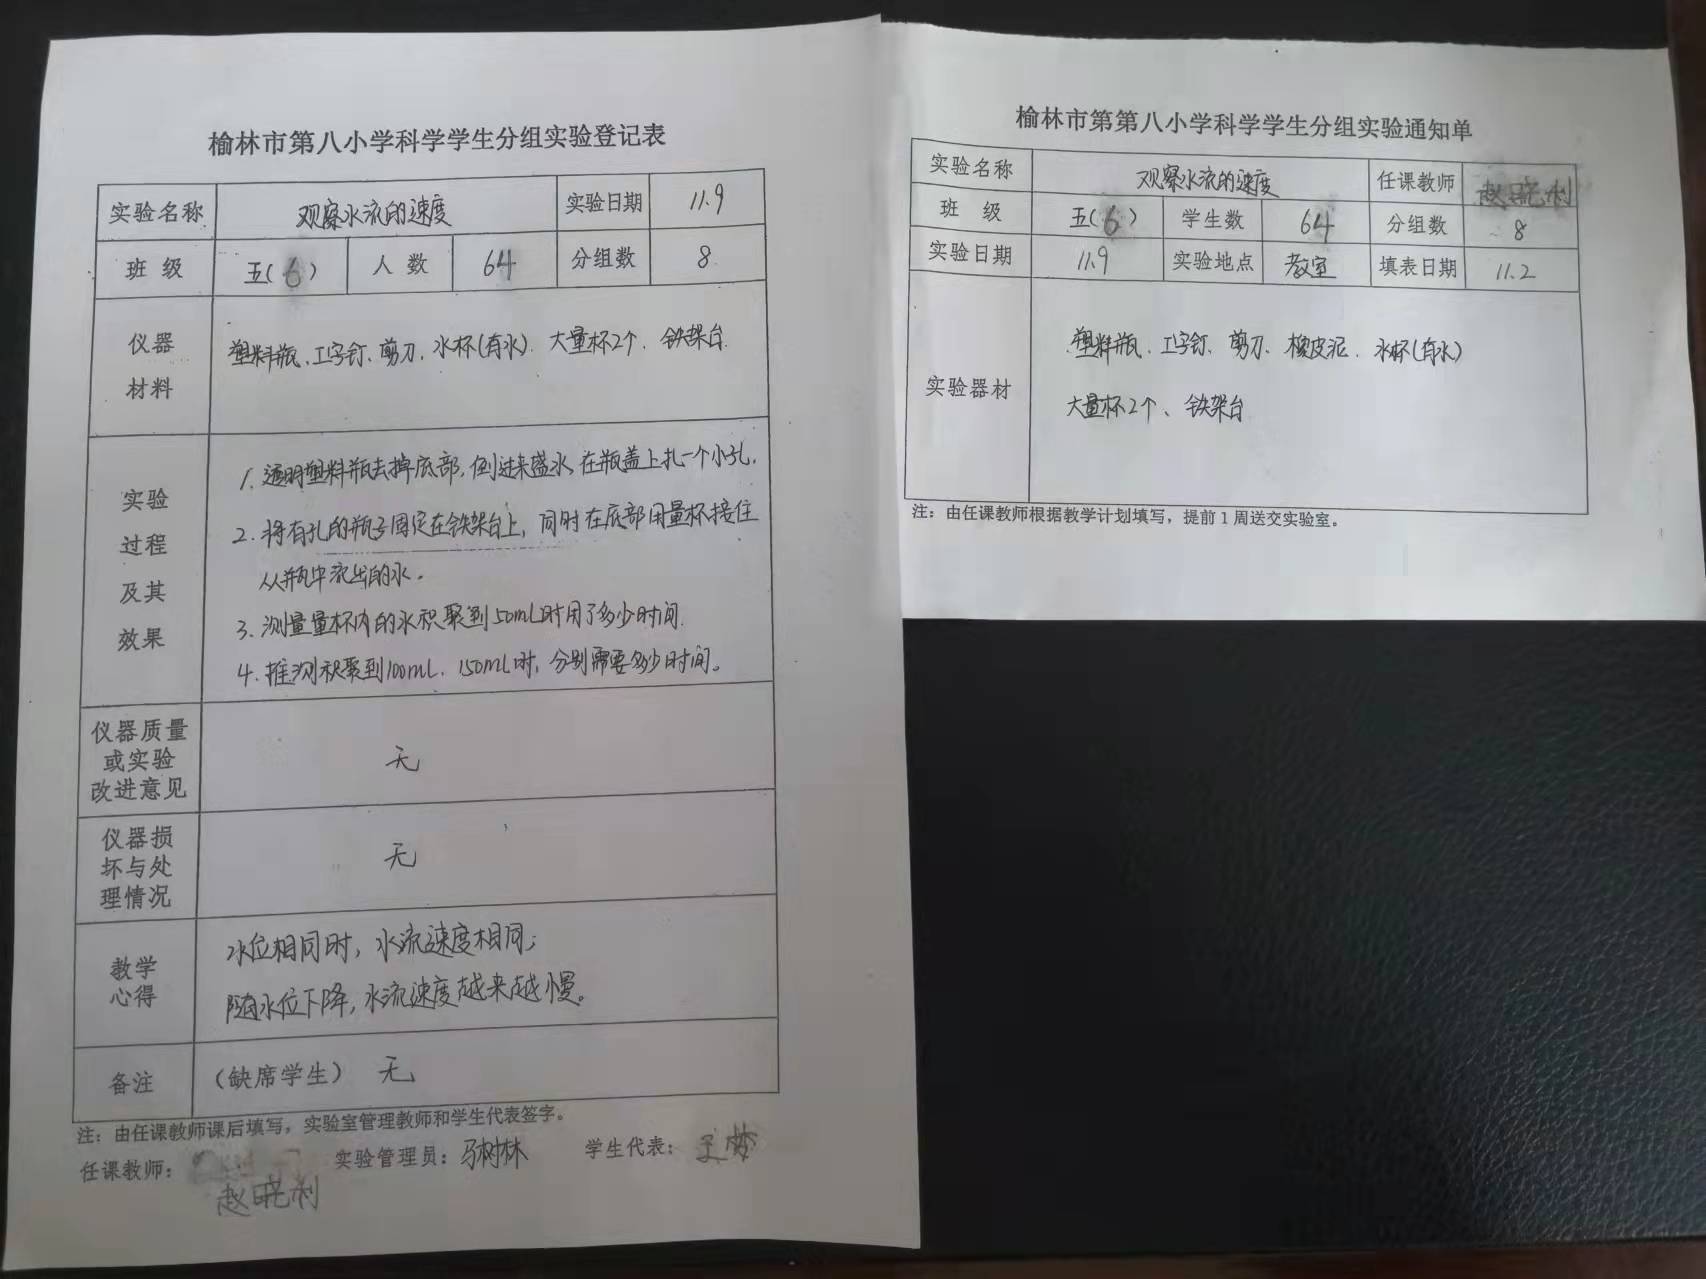 榆林市第八小学科学学生分组实验登记表
实验名称 观察水流的速度 实验日期 11.9
班 级 五(6) 人 数 64 分组数 8
仪器
材料
塑料瓶、工字钉、剪刀、水杯(有水)、大量杯2个、铁架台
实验
过程
及其
效果
1. 透明塑料瓶去掉底部,倒过来盛水,在瓶盖上扎一个小孔.
2. 将有孔的瓶子固定在铁架台上,同时在底部用量杯接住
从瓶中流出的水.
3. 测量量杯内的水积聚到50mL时用了多少时间.
4. 推测积聚到100mL、150mL时,分别需要多少时间。
仪器质量
或实验
改进意见
无
仪器损
坏与处
理情况
无
教学
心得
水位相同时,水流速度相同;
随水位下降,水流速度越来越慢。
备注 (缺席学生) 无
注:由任课教师课后填写,实验室管理教师和学生代表签字。
任课教师: 实验管理员:马树林 学生代表:
赵晓利
榆林市第第八小学科学学生分组实验通知单
实验名称 观察水流的速度 任课教师 赵晓利
班 级 五(6) 学生数 64 分组数 8
实验日期 11.9 实验地点 教室 填表日期 11.2
实验器材
塑料瓶、工字钉、剪刀、橡皮泥、水杯(有水)
大量杯2个、铁架台
注:由任课教师根据教学计划填写,提前1周送交实验室。